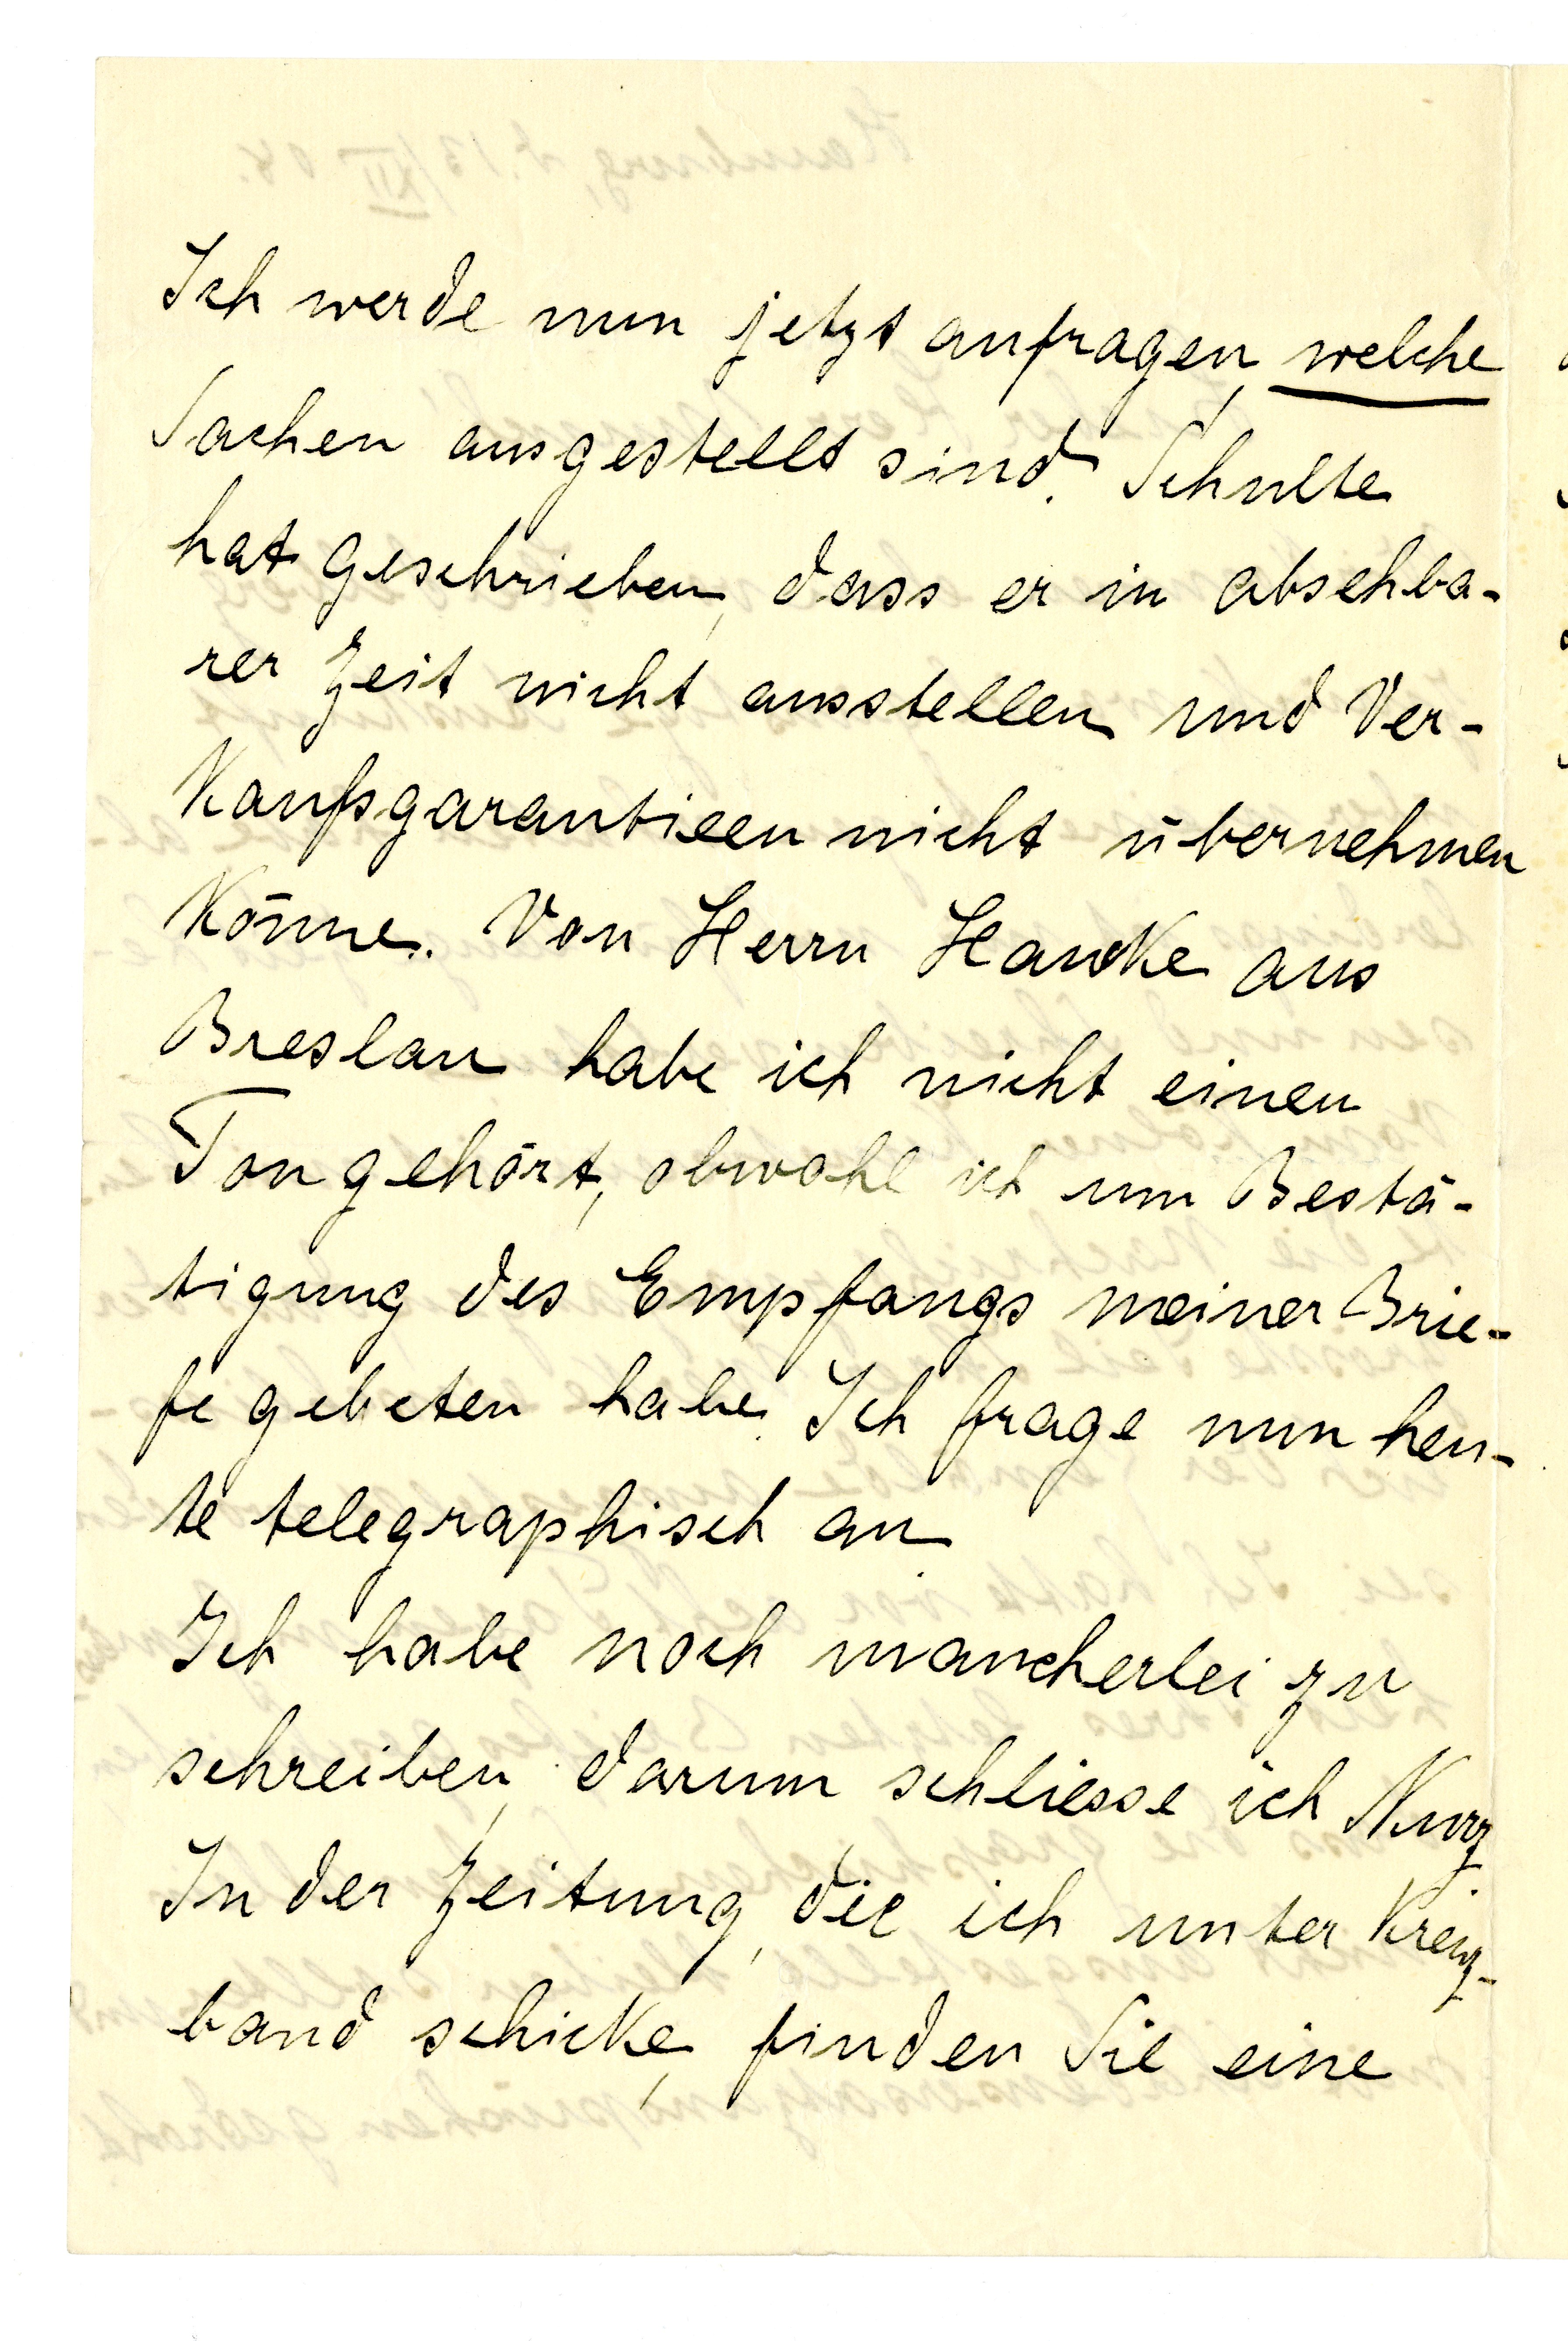 Ich werde nun jetzt anfragen, welche
Sachen ausgestellt sind. Schulte
hat geschrieben, dass er in absehba-
rer Zeit nicht ausstellen und Ver-
kaufsgarantieen nicht übernehmen
könne. Von Herrn Hancke aus
Breslau habe ich nicht einen
Ton gehört, obwohl ich um Bestä-
tigung des Empfangs meiner Brie-
fe gebeten habe. Ich frage nun heu-
te telegraphisch an
Ich habe noch mancherlei zu
schreiben, darum schliesse ich kurz.
In der Zeitung, die ich unter Kreuz-
band schicke, finden Sie eine